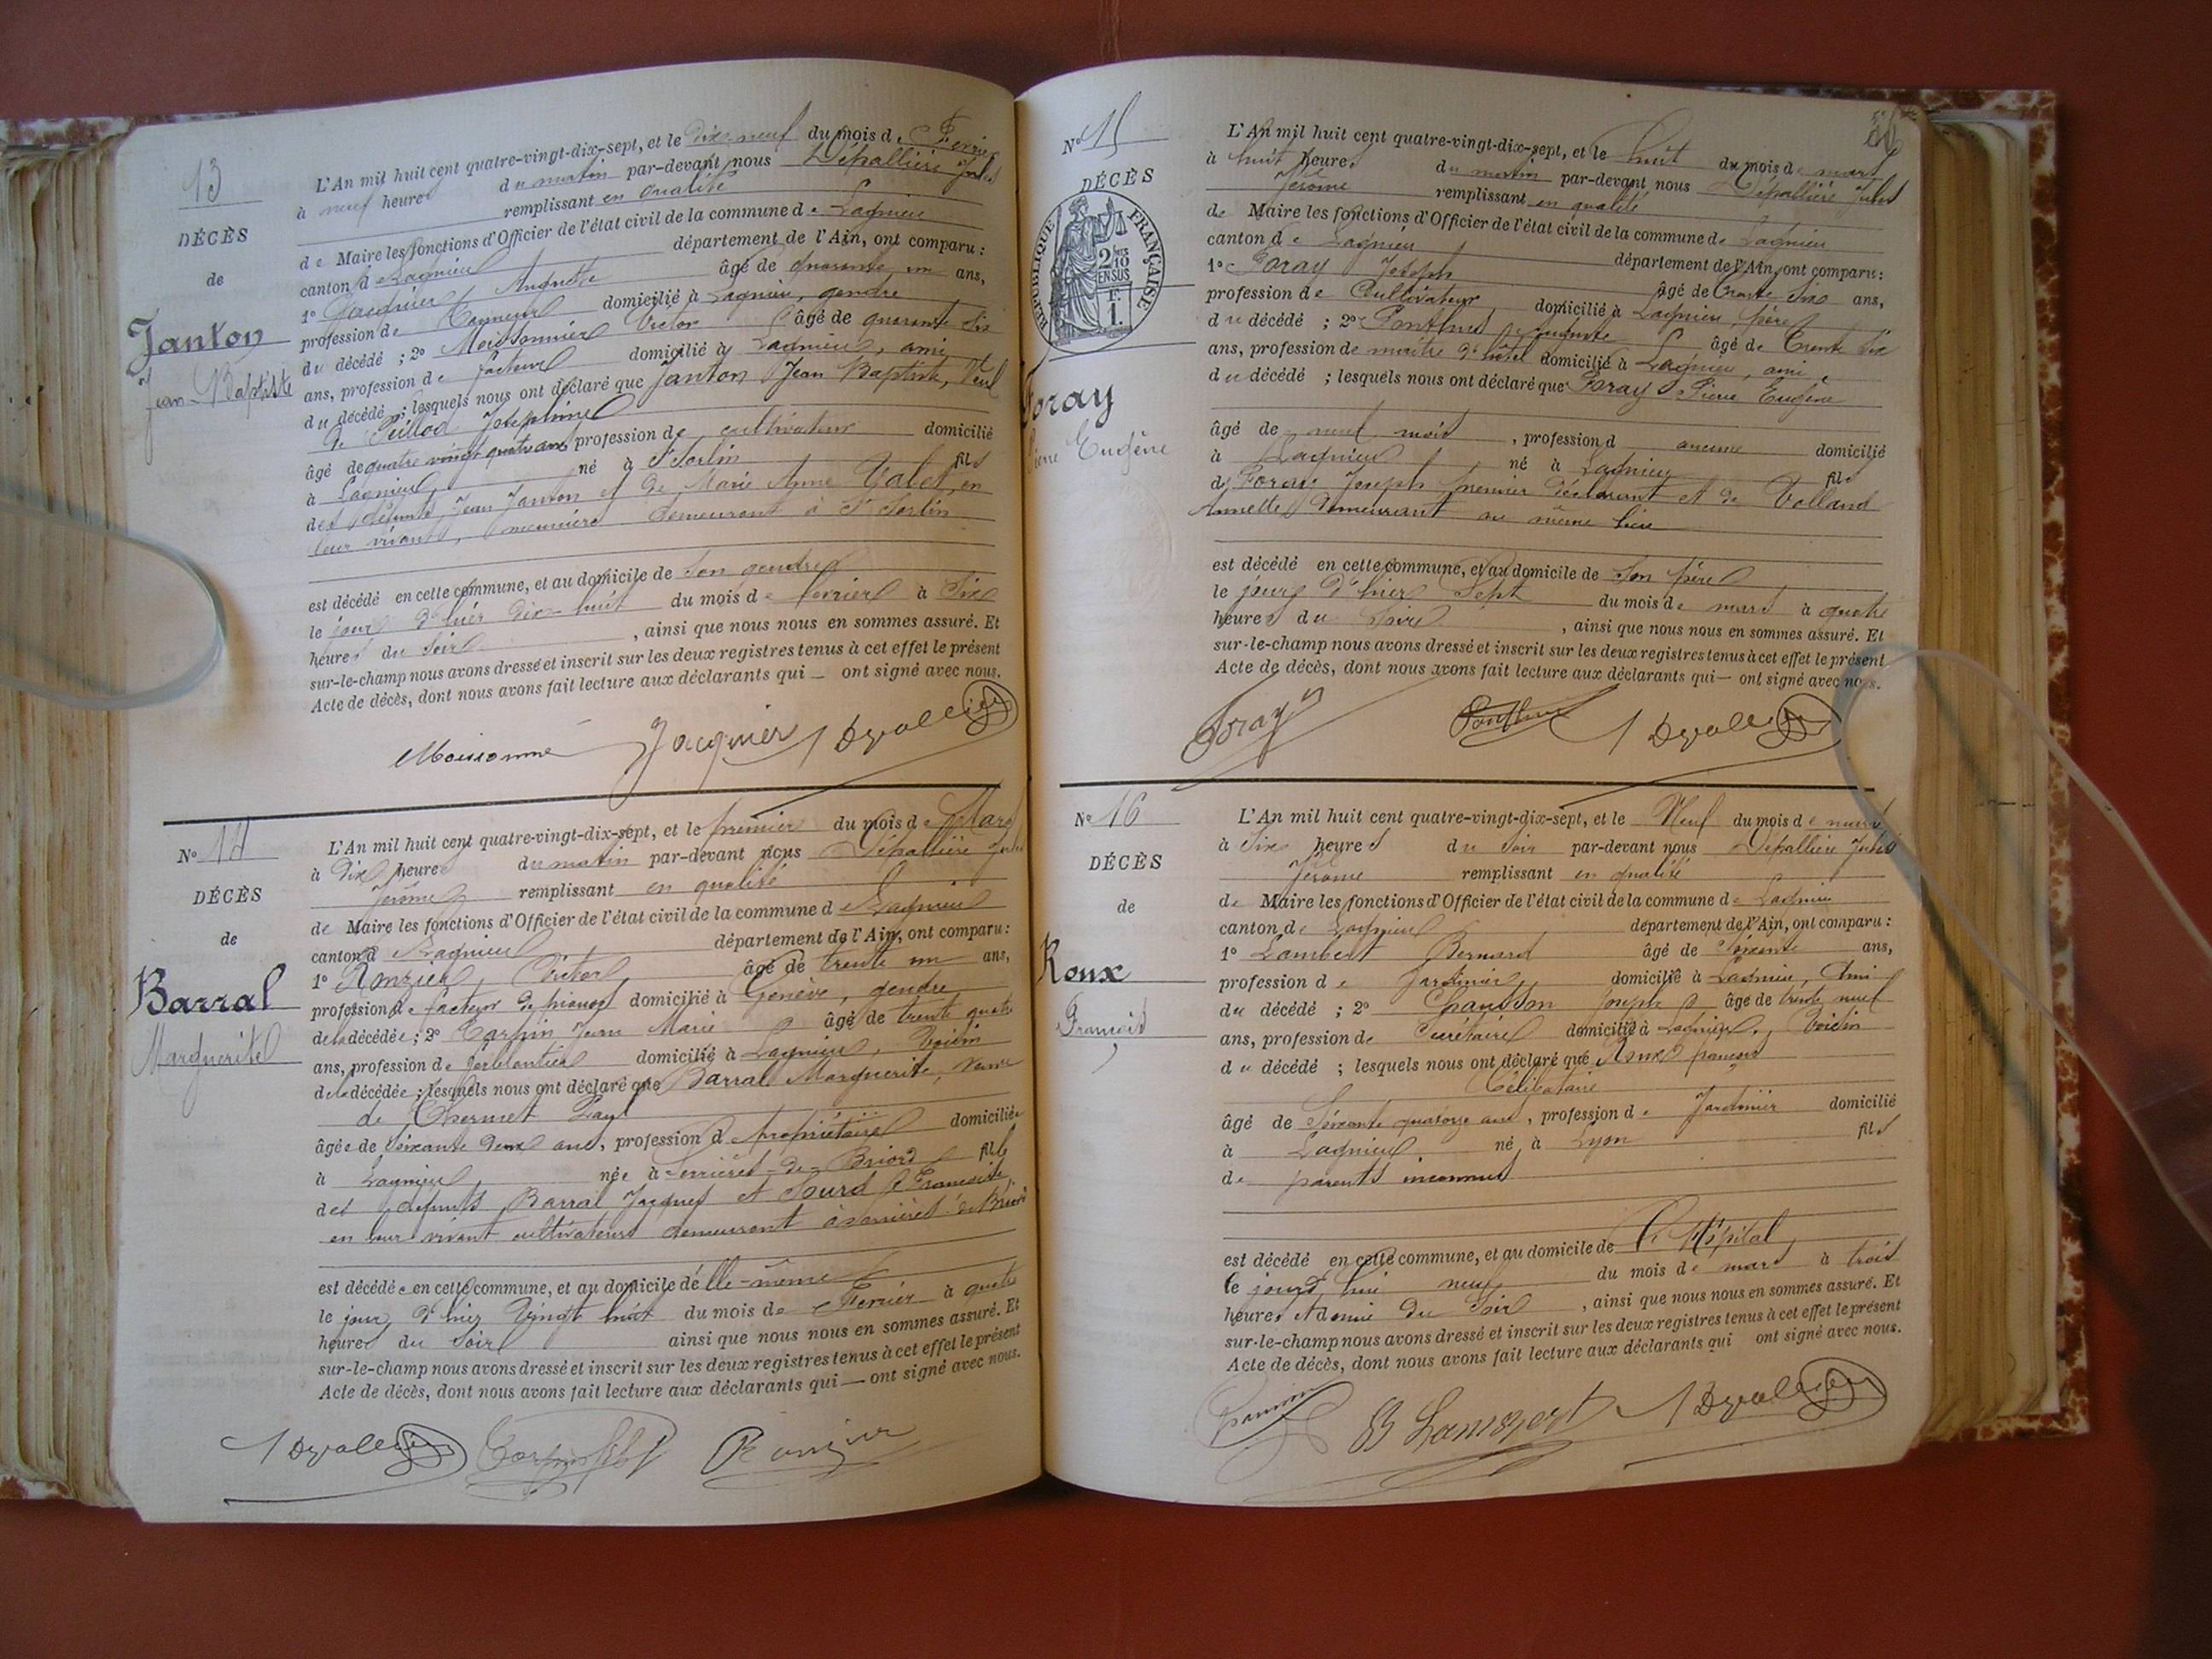 13
DÉCÈS
de
Janton
Jean-Baptiste
L'An mil huit cent quatre-vingt-dix-sept, et le dix-neuf du mois de Février
à neuf heures du matin par-devant nous Dépallière Jules
remplissant en qualité
de Maire les fonctions d'Officier de l'état civil de la commune de Lagnieu
canton de Lagnieu département de l'Ain, ont comparu :
1° Jacquier Auguste âgé de quarante un ans,
profession de domicilié à Lagnieu, gendre
du décédé ; 2° Moissonnier Victor âgé de quarante six
ans, profession de facteur domicilié à Lagnieu, ami
du décédé ; lesquels nous ont déclaré que Janton Jean Baptiste, Veuf
de Joséphine
âgé de quatre vingt quatre ans profession de cultivateur domicilié
à Lagnieu, né à St Sorlin fils
des défunts Jean Janton et de Marie Anne Valet, en
leur vivant, demeurant à St Sorlin
est décédé en cette commune, et au domicile de son gendre
le jour d'hier dix-huit du mois de février à Six
heures du Soir , ainsi que nous nous en sommes assuré. Et
sur-le-champ nous avons dressé et inscrit sur les deux registres tenus à cet effet le présent
Acte de décès, dont nous avons fait lecture aux déclarants qui — ont signé avec nous.
Jacquier
N° 14
DÉCÈS
de
Barral
Marguerite
L'An mil huit cent quatre-vingt-dix-sept, et le premier du mois de Mars
à dix heures du matin par-devant nous Dépallière Jules
Jérôme remplissant en qualité
de Maire les fonctions d'Officier de l'état civil de la commune de Lagnieu
canton d Lagnieu département de l'Ain, ont comparu :
1° Ronzier, Victor âgé de trente un ans,
profession de facteur de pianos domicilié à Genève, gendre
de la décédée ; 2° Carpin Jean Marie âgé de trente quatre
ans, profession de ferblantier domicilié à Lagnieu, Voisin
de la décédée ; lesquels nous ont déclaré que Barral Marguerite, veuve
de Chermet
âgée de soixante deux ans, profession d propriétaire domiciliée
à Lagnieu née à Serrières-de-Briord fille
des défunts Barral Jacques et Sourd Françoise
en leur vivant cultivateurs demeurant à Serrières de Briord
est décédée en cette commune, et au domicile d'elle-même
le jour d'hier vingt huit du mois de Février à quatre
heures du Soir ainsi que nous nous en sommes assuré. Et
sur-le-champ nous avons dressé et inscrit sur les deux registres tenus à cet effet le présent
Acte de décès, dont nous avons fait lecture aux déclarants qui — ont signé avec nous.
N° 15
DÉCÈS
RÉPUBLIQUE FRANÇAISE
2/10 EN SUS
F. 1.
Foray
Pierre Eugène
L'An mil huit cent quatre-vingt-dix-sept, et le huit du mois de mars
à huit heures du matin par-devant nous Dépallière Jules
Jérôme remplissant en qualité
de Maire les fonctions d'Officier de l'état civil de la commune de Lagnieu
canton de Lagnieu département de l'Ain, ont comparu :
1° Foray Joseph âgé de trente six ans,
profession de Cultivateur domicilié à Lagnieu, père
du décédé ; 2° Ponthus Auguste âgé de Trente six
ans, profession de maître d'hôtel domicilié à Lagnieu, ami
du décédé ; lesquels nous ont déclaré que Foray Pierre Eugène
âgé de neuf mois , profession d aucune domicilié
à Lagnieu né à Lagnieu fils
de Foray Joseph, premier déclarant et de Volland
Annette demeurant au même lieu
est décédé en cette commune, et au domicile de son père
le jour d'hier Sept du mois de mars à quatre
heures du soir , ainsi que nous nous en sommes assuré. Et
sur-le-champ nous avons dressé et inscrit sur les deux registres tenus à cet effet le présent
Acte de décès, dont nous avons fait lecture aux déclarants qui — ont signé avec nous.
Foray Ponthus
N° 16
DÉCÈS
de
Roux
François
L'An mil huit cent quatre-vingt-dix-sept, et le Neuf du mois de mars
à Six heures du Soir par-devant nous Dépallière Jules
Jérôme remplissant en qualité
de Maire les fonctions d'Officier de l'état civil de la commune de Lagnieu
canton de Lagnieu département de l'Ain, ont comparu :
1° Lambert Bernard âgé de Soixante ans,
profession de Jardinier domicilié à Lagnieu, Ami
du décédé ; 2° Chausson Joseph âgé de trente neuf
ans, profession de Secrétaire domicilié à Lagnieu, Voisin
du décédé ; lesquels nous ont déclaré que Roux François
Célibataire
âgé de Soixante quatorze ans, profession de Jardinier domicilié
à Lagnieu né à Lyon fils
de parents inconnus
est décédé en cette commune, et au domicile de L'Hôpital
le jourd'hui neuf du mois de mars à trois
heures et demie du Soir , ainsi que nous nous en sommes assuré. Et
sur-le-champ nous avons dressé et inscrit sur les deux registres tenus à cet effet le présent
Acte de décès, dont nous avons fait lecture aux déclarants qui ont signé avec nous.
B Lambert